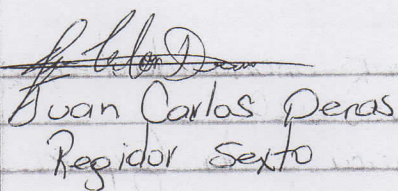 Juan Carlos Penas
Regidor Sexto